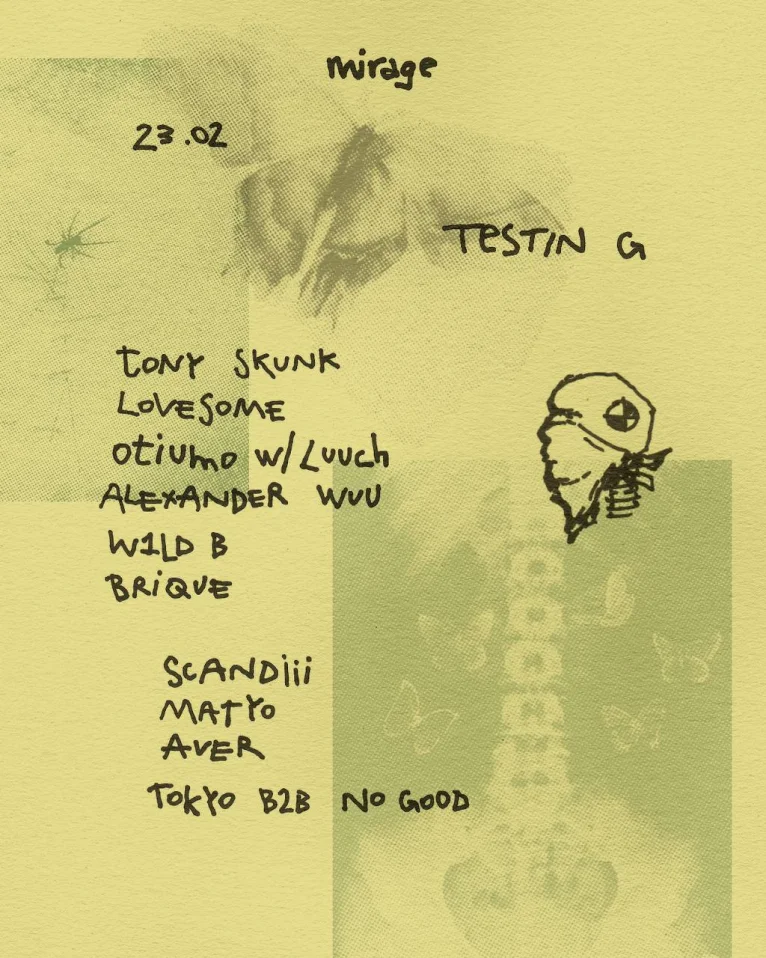 mirage
23.02
TESTIN G
TONY SKUNK
LOVESOME
otiumo w/ Luuch
ALEXANDER WUU
W1LD B
BRiQUE
SCANDiii
MATYO
AVER
TOKYO B2B NO GOOD